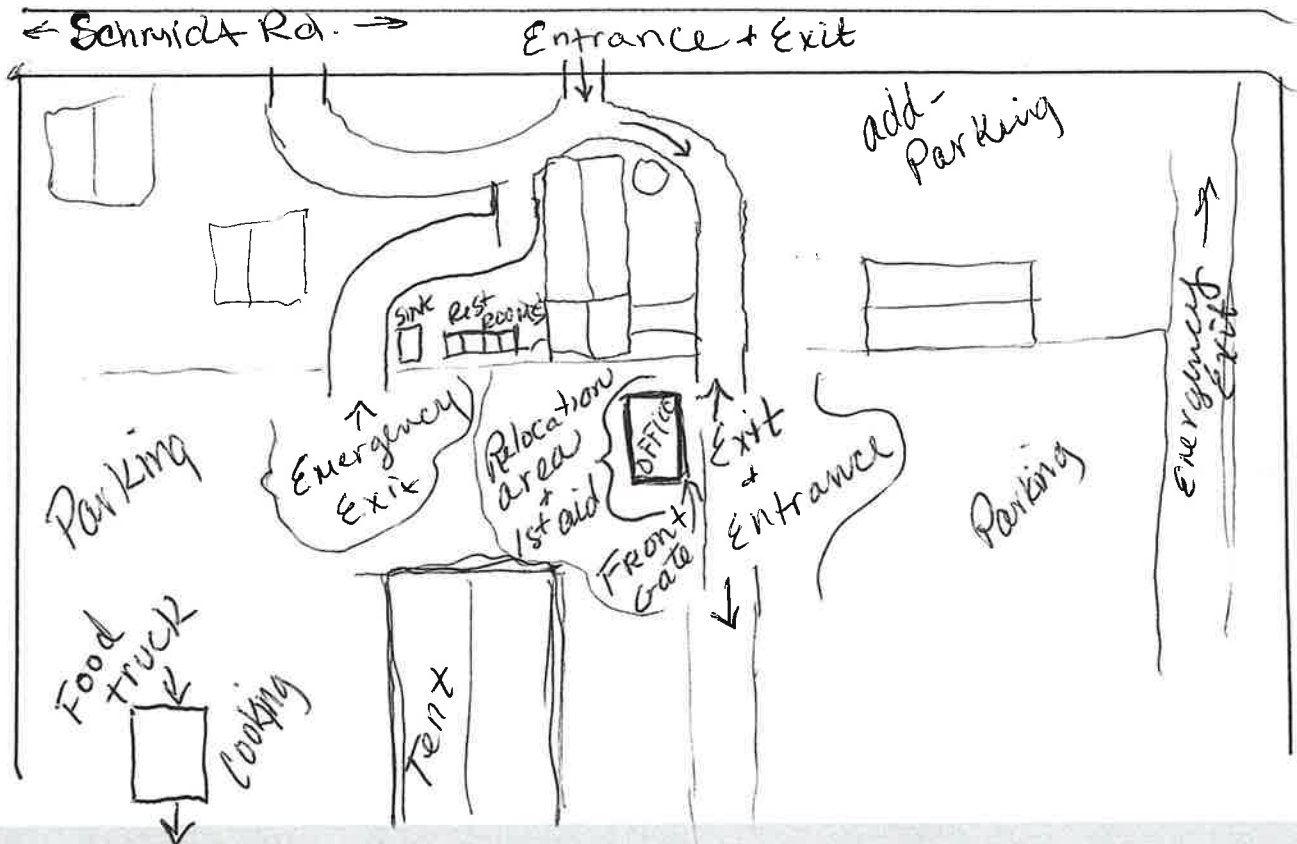 ← Schmidt Rd. →
Entrance + Exit
add-
Parking
Emergency
Exit →
SINK
REST
ROOMS
Parking
Emergency
Exit
Relocation
area
+
1st aid
OFFICE
Exit
+
Entrance
Front
Gate
Parking
Food
truck
Cooking
Tent